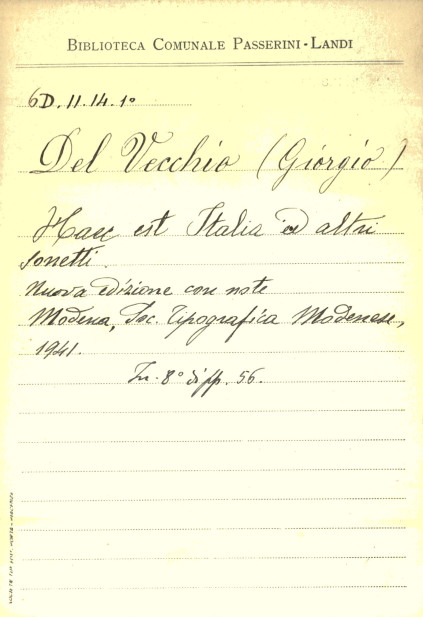 BIBLIOTECA COMUNALE PASSERINI-LANDI
6D.11.14.1º
Del Vecchio (Giorgio)
Haec est Italia ed altri
sonetti.
Nuova edizione con note
Modena, Soc. Tipografica Modenese,
1941.
In. 8º di pp. 56.